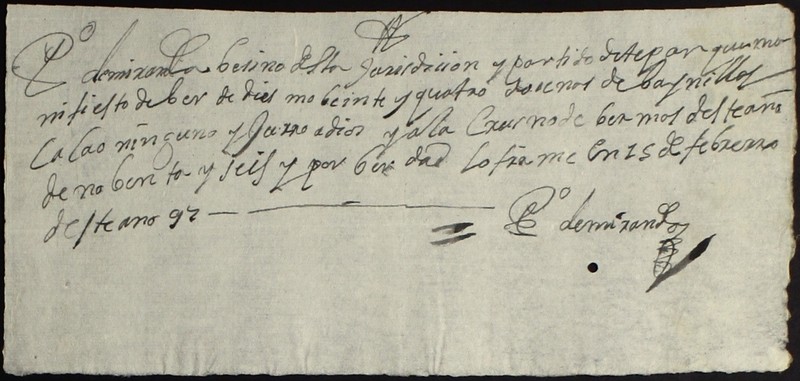 Po demiranda besino desta Jurisdicion y partido detepar que ma
nifiesto deber de diesmo beinte y quatro dosenos de baynillas
Cacao ninguno y Juro adios y ala Crus no deber mas deste año
de nobenta y seis y por berdad lo firme en 15 de febrero
deste ano 97
Po demiranda